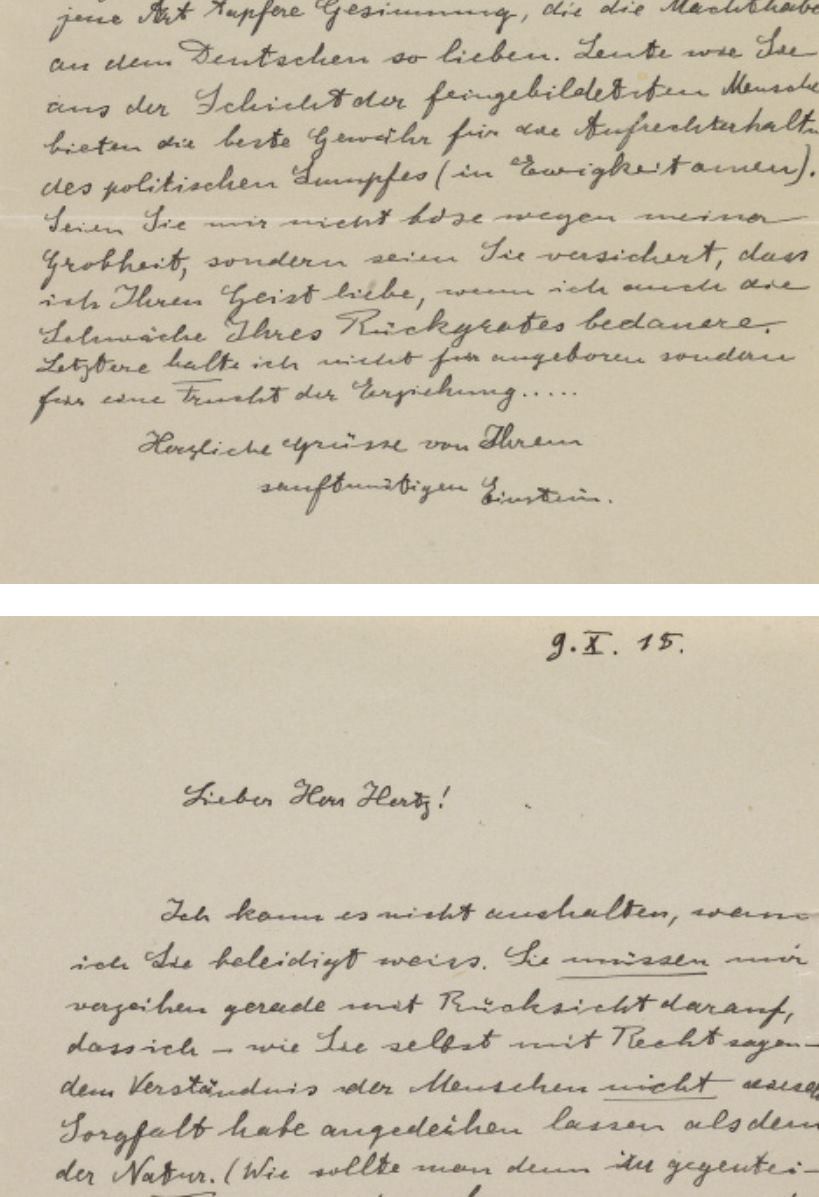 jene Art tapfere Gesinnung, die die Machthabe
an dem Deutschen so lieben. Leute wie Sie
aus der Schicht der feingebildetsten Mensche
bieten die beste Gewähr für die Aufrechterhaltu
des politischen Sumpfes (in Ewigkeit amen).
Seien Sie mir nicht böse wegen meiner
Grobheit, sondern seien Sie versichert, dass
ich Ihren Geist liebe, wenn ich auch die
Schwäche Ihres Rückgrates bedauere.
Letztere halte ich nicht für angeboren sondern
für eine Frucht der Erziehung.....
Herzliche Grüsse von Ihrem
sanftmütigen Einstein.
9.X. 15.
Lieber Herr Hertz!
Ich kann es nicht aushalten, wenn
ich Sie beleidigt weiss. Sie müssen mir
verzeihen gerade mit Rücksicht darauf,
dass ich – wie Sie selbst mit Recht sagen –
dem Verständnis der Menschen nicht
Sorgfalt habe angedeihen lassen als dem
der Natur. (Wie sollte man denn im gegentei-